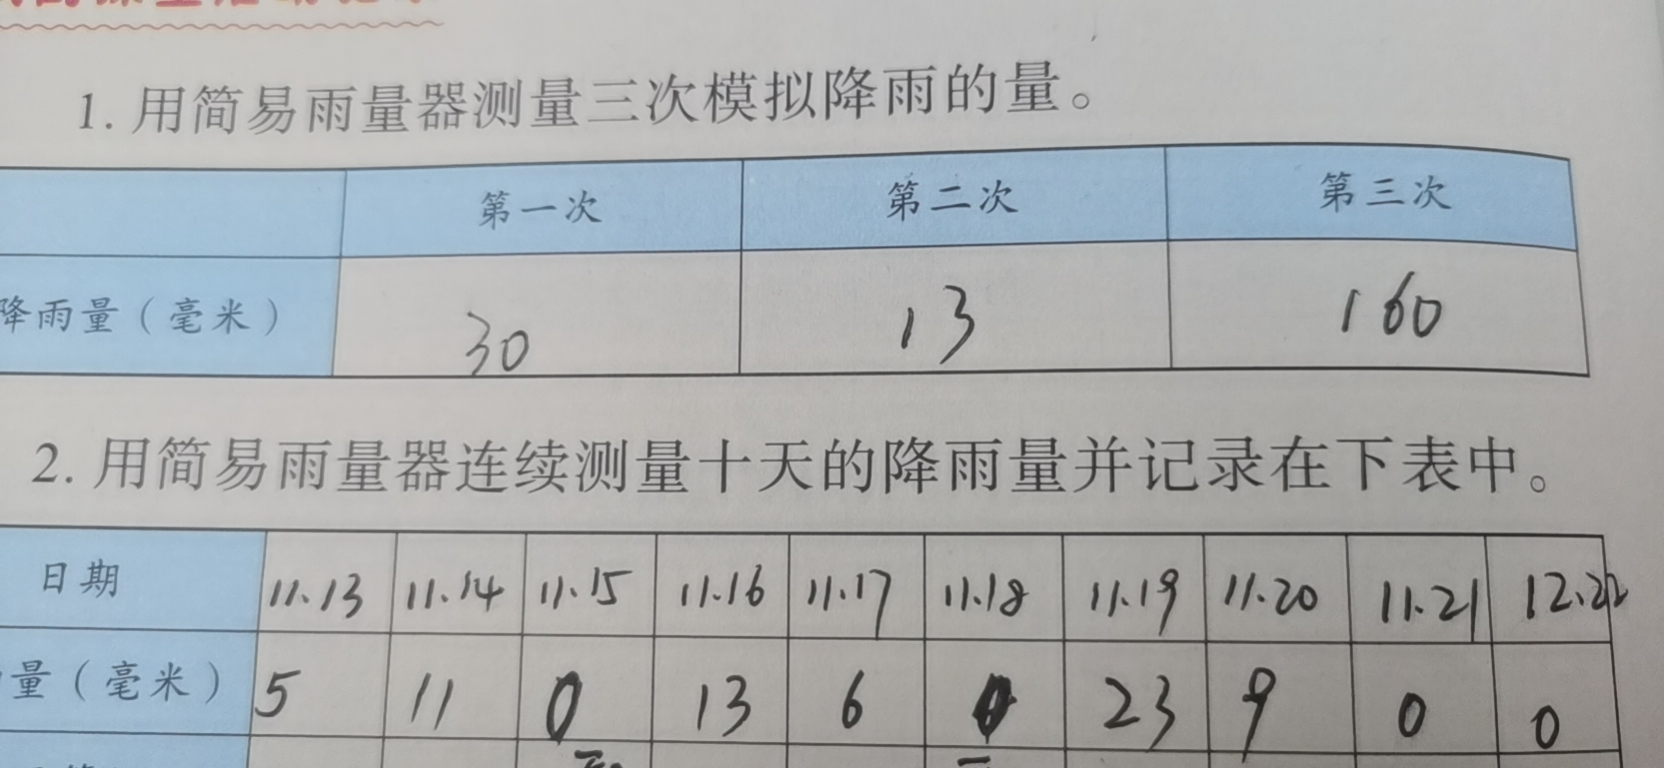 1. 用简易雨量器测量三次模拟降雨的量。
第一次 第二次 第三次
降雨量（毫米） 30 13 160
2. 用简易雨量器连续测量十天的降雨量并记录在下表中。
日期 11.13 11.14 11.15 11.16 11.17 11.18 11.19 11.20 11.21 12.22
量（毫米） 5 11 0 13 6 0 23 9 0 0